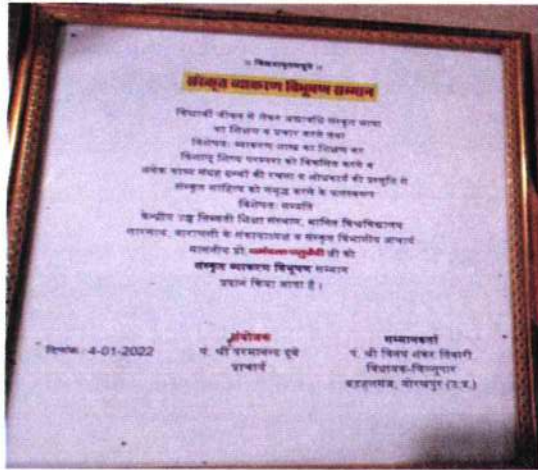 ॥ विद्ययाऽमृतमश्नुते ॥
संस्कृत व्याकरण विभूषण सम्मान
विद्यार्थी जीवन से लेकर अद्यावधि संस्कृत भाषा
का शिक्षण व प्रचार करने तथा
विशेषतः व्याकरण शास्त्र का शिक्षण कर
शिष्य परम्परा को विकसित करने व
अनेक काव्य संग्रह ग्रन्थों की रचना व शोधकार्य की प्रस्तुति से
संस्कृत साहित्य को समृद्ध करने के फलस्वरूप
विशेषतः सम्प्रति
केन्द्रीय उच्च तिब्बती शिक्षा संस्थान, मानित विश्वविद्यालय
सारनाथ, वाराणसी के संकायाध्यक्ष व संस्कृत विभागीय आचार्य
माननीय प्रो. धर्मदत्त चतुर्वेदी जी को
संस्कृत व्याकरण विभूषण सम्मान
प्रदान किया जाता है।
दिनांक : 4-01-2022
संयोजक
पं. श्री परमानन्द दूबे
प्राचार्य
सम्मानकर्ता
पं. श्री विनय शंकर तिवारी
विधायक-चिल्लूपार
बड़हलगंज, गोरखपुर (उ.प्र.)